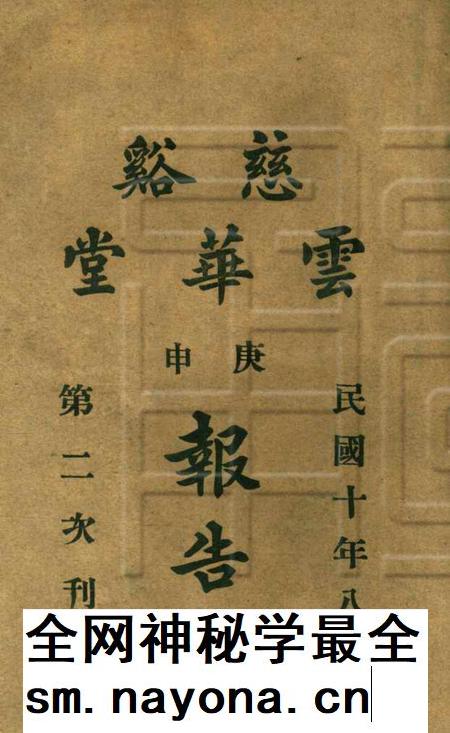 慈谿
雲華堂
庚申
報告
民國十年八
第二次刊
全网神秘学最全
sm.nayona.cn